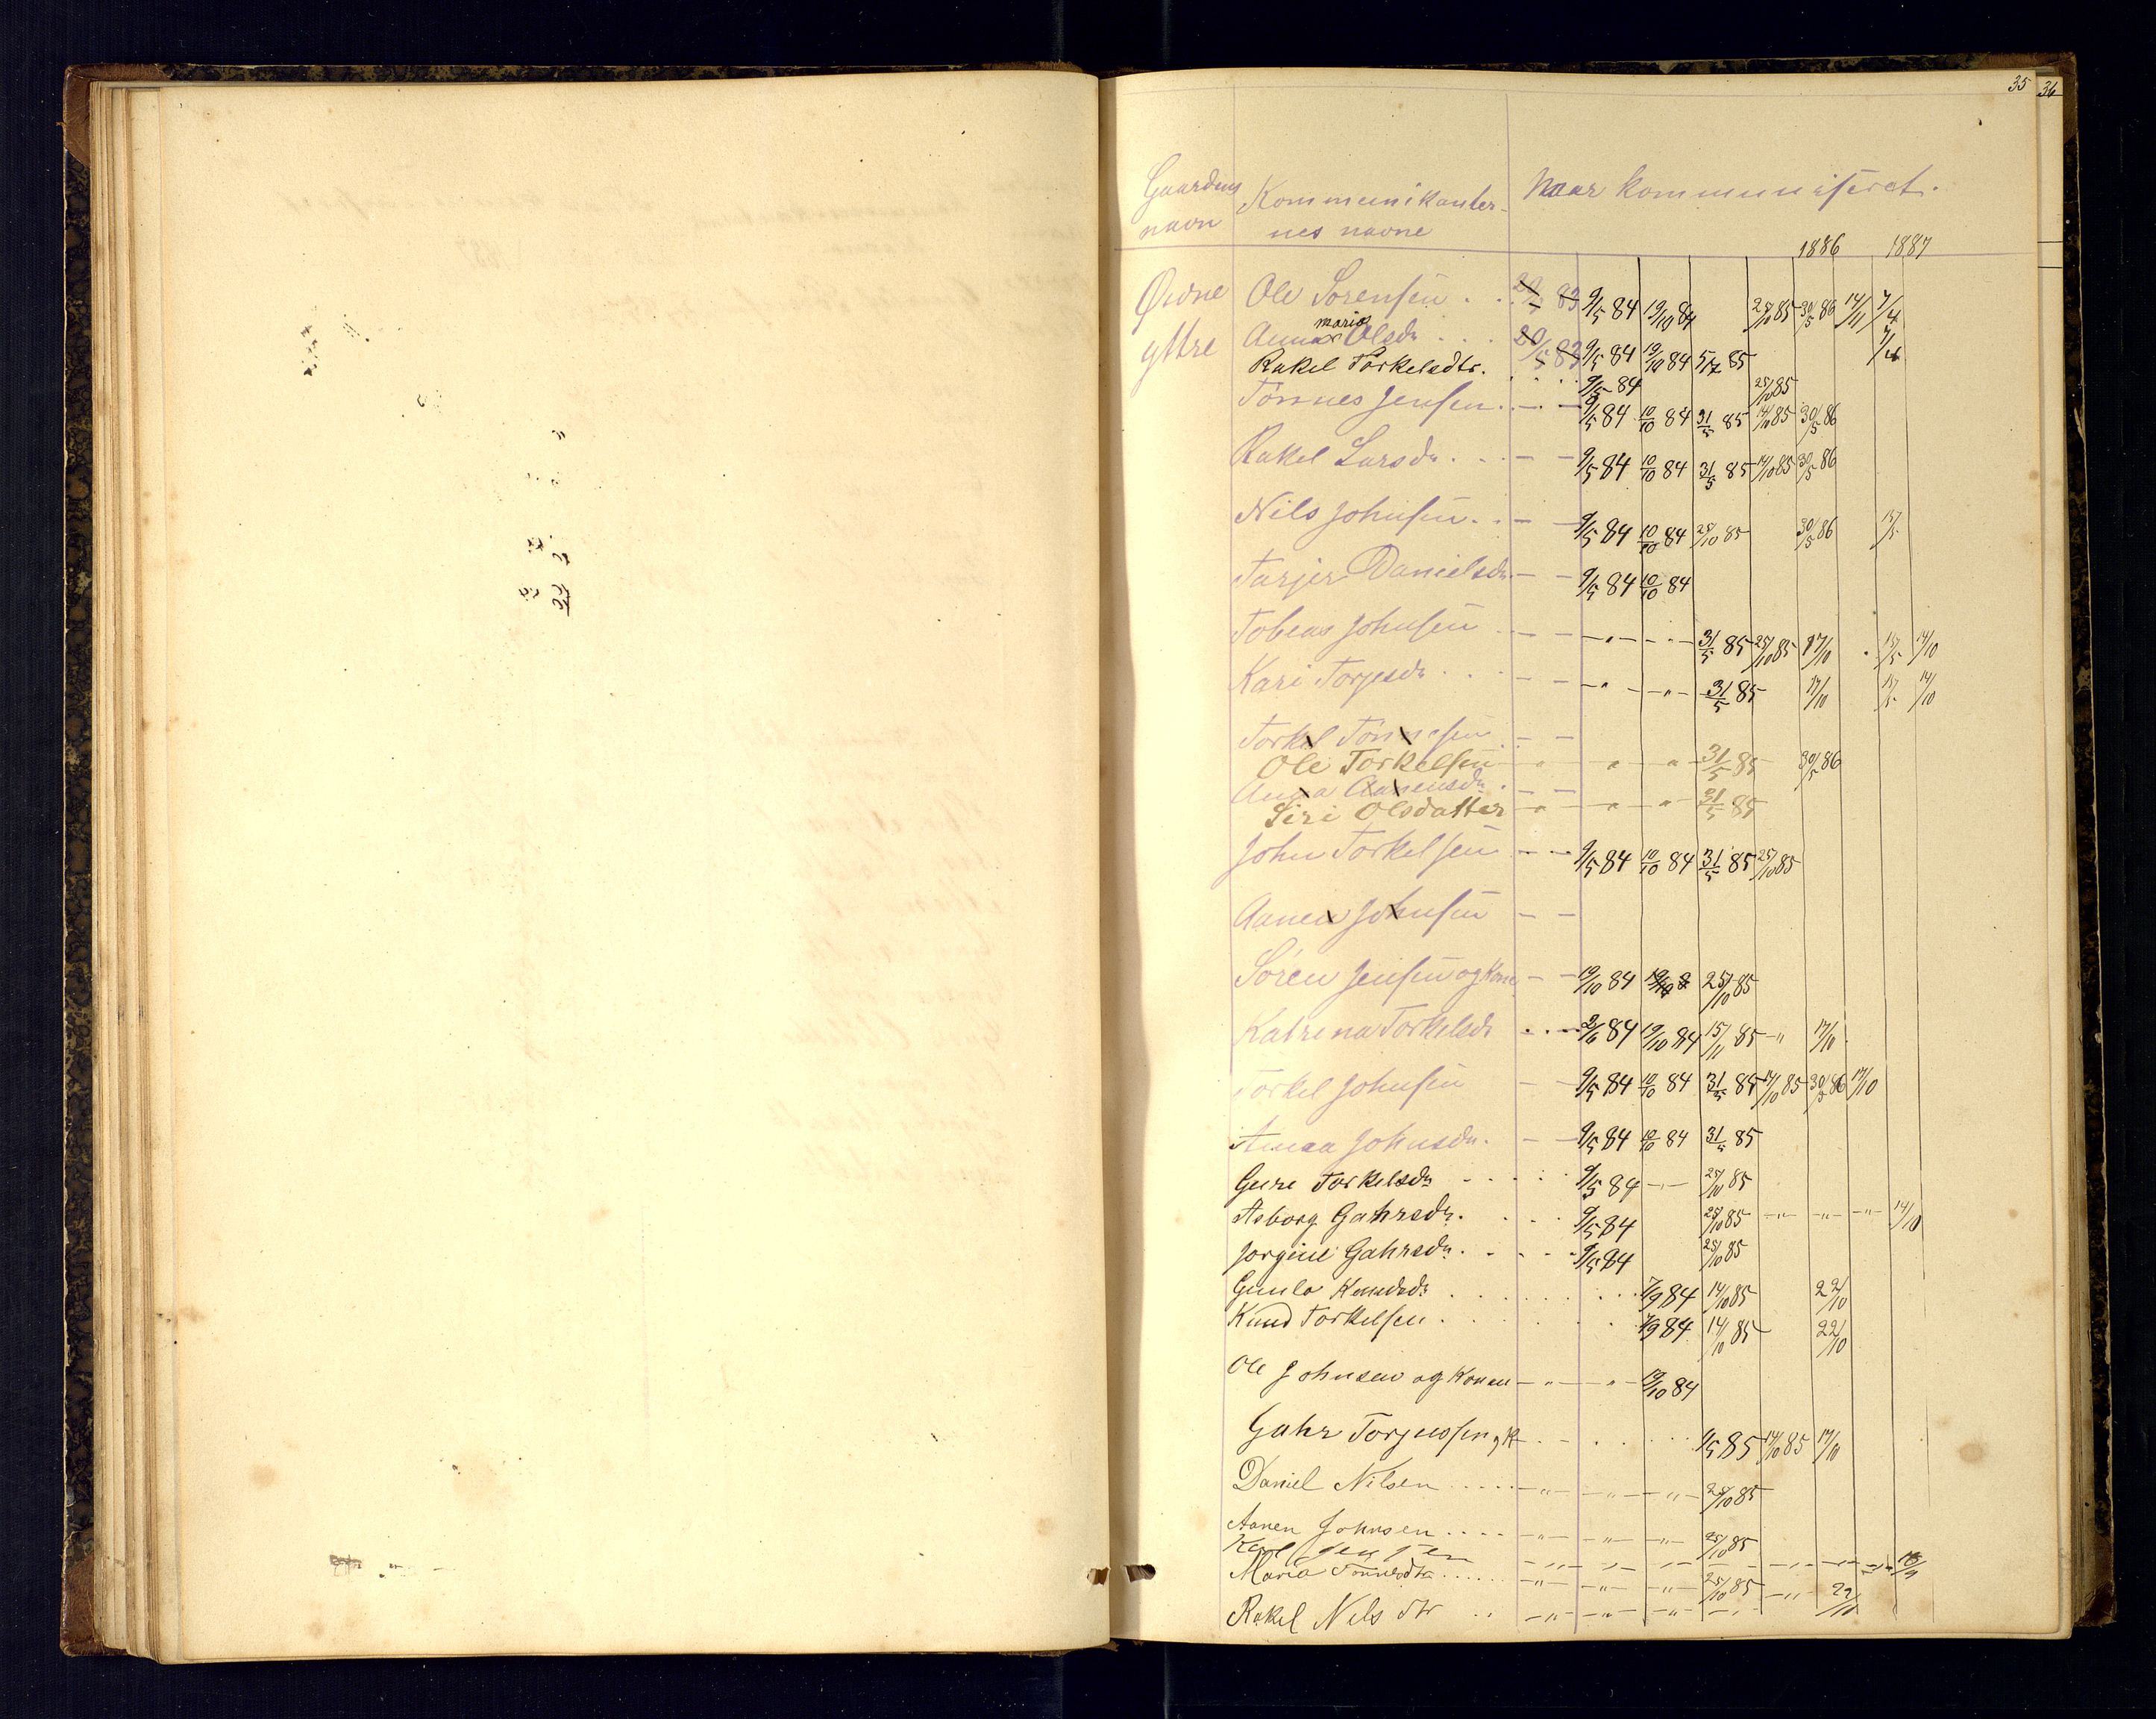 35 36
Gaardens navn Kommunikanternes navne Naar kommuniseret.
1886 1887
Øidne Ole Sørensen . . 20/5 83 9/5 84 19/10 84 25/10 85 30/5 86 14/11 7/4
yttre Anna maria Olsdr . . . 20/5 83 9/5 84 19/10 84 5/7 85 7/4
Rakel Torkelsdtr. 9/5 84 25/10 85
Tønnes Jensen . — 9/5 84 10/10 84 31/5 85 14/10 85 30/5 86
Rakel Larsdr . . — — 9/5 84 10/10 84 31/5 85 14/10 85 30/5 86
Nils Johnsen . . — 9/5 84 10/10 84 25/10 85 30/5 86 15/5
Tarjer Danielsdr — — 9/5 84 10/10 84
Tobias Johnsen — — " — " — 31/5 85 25/10 85 17/10 15/5 14/10
Kari Torjesdr . . — — " — " — 31/5 85 17/10 15/5 14/10
Torkel Tønnesen — —
Ole Torkelsen " " " 31/5 85 30/5 86
Anna Aanensdr . — —
Siri Olsdatter " " " 31/5 85
John Torkelsen — — 9/5 84 10/10 84 31/5 85 25/10 85
Aanen Johnsen — —
Søren Jensen og Kone — — 19/10 84 19/10 8 25/10 85
Katrina Torkelsdr . . — 2/6 84 19/10 84 15/11 85 — " 17/10
Torkel Johnsen — — 9/5 84 10/10 84 31/5 85 14/10 85 30/5 86 17/10
Anna Johnsdr. — — 9/5 84 10/10 84 31/5 85
Gure Torkelsdr . . . . 9/5 84 — " — 25/10 85
Asborg Gahrsdr. . . . 9/5 84 25/10 85 — " — — " — — " — 14/10
Jorgine Gahrsdr. . . . 9/5 84 25/10 85
Gunla Knudsdr . . . . . . . 7/9 84 14/10 85 22/10
Knud Torkelsen . . . . . 7/9 84 14/10 85 22/10
Ole Johnsen og Konen — " — " — 19/10 84
Gahr Torjussen og K — . — . . . . 1/5 85 14/10 85 17/10
Daniel Nilsen . . . . . — " — — " — — " — 25/10 85
Aanen Johnsen . . . . — " — — " — — " — 25/10 85
Karl Jensen — " — — " — — " — — — " — — " — — " — 18/9
Maria Tønnesdtr . . . . . — " — — " — — " — 25/10 85 — " — 22/10
Rakel Nilsdtr . . — " — — " — — " — — " —